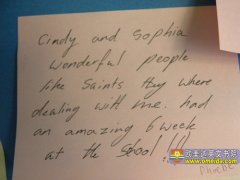 Cindy and Sophia
wonderful people
like Saints they where
dealing with me. had
an amazing 6 week
at the School !!!
Phoebe
欧美德英文书馆
www.omeida.com